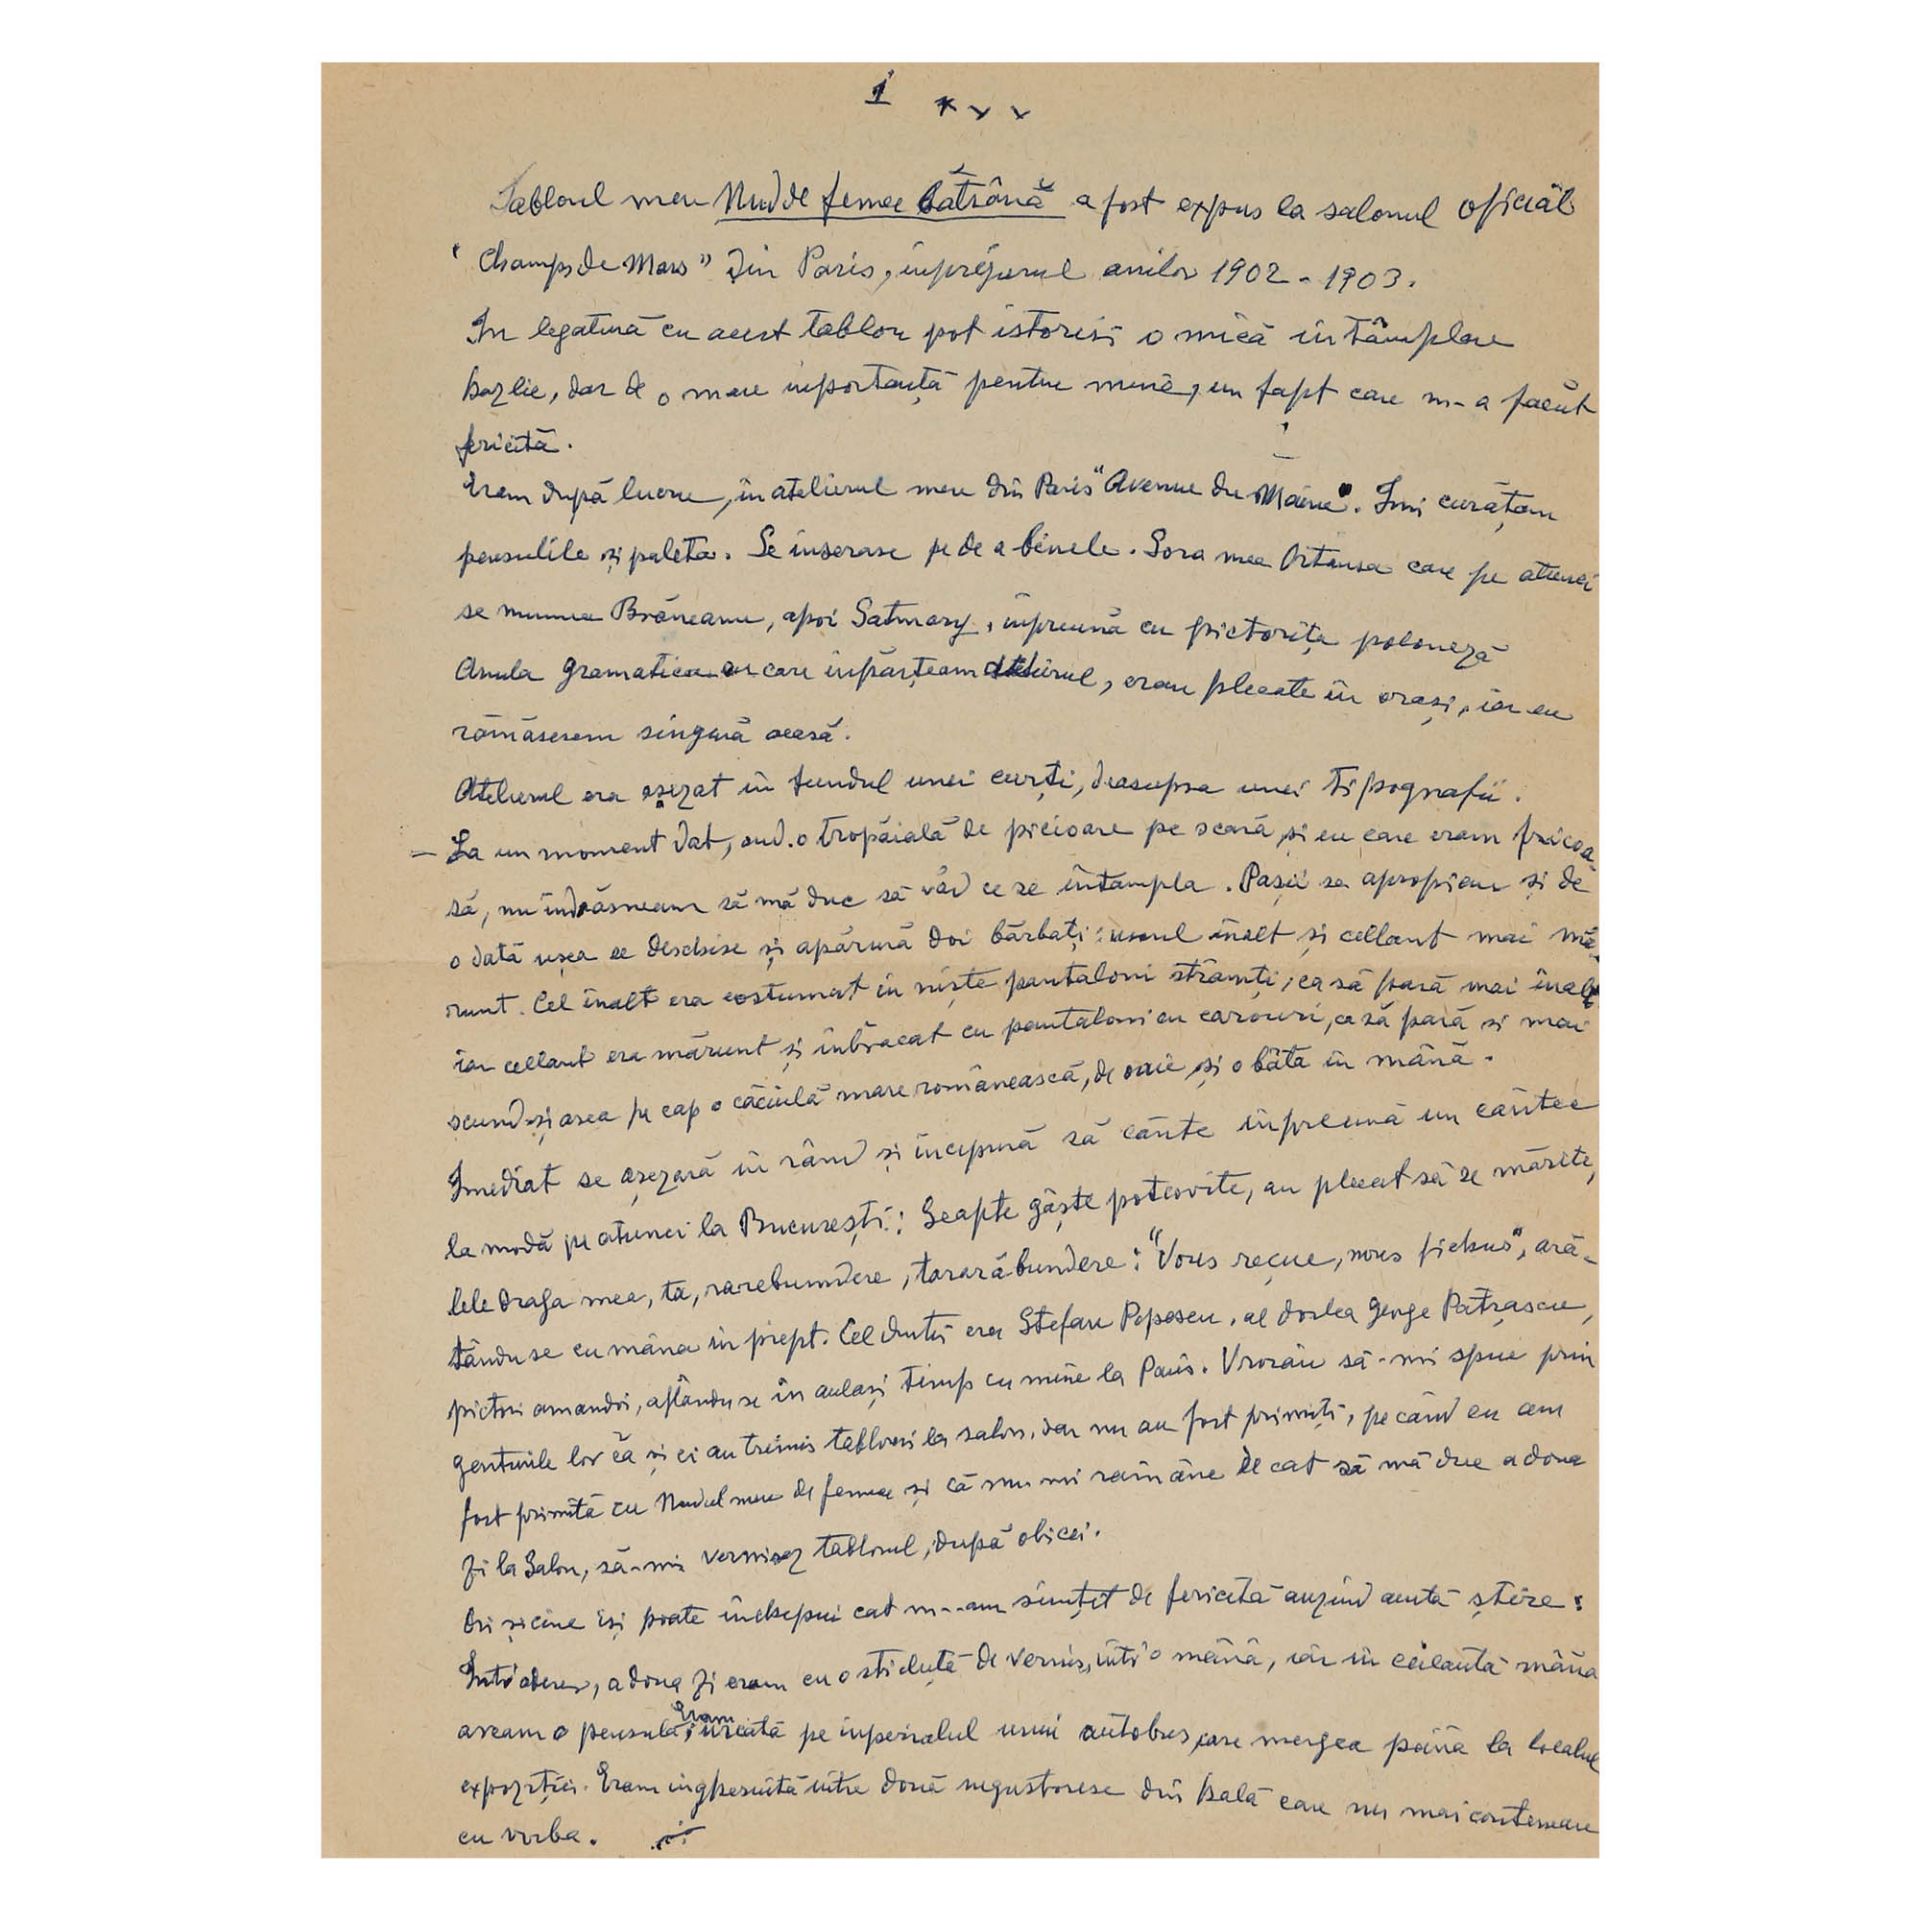 1 x x x
Tabloul meu Nud de femee bătrână a fost expus la salonul oficial
"Champs de Mars" din Paris, înprejurul anilor 1902 - 1903.
In legatură cu acest tablou pot istorisi o mică întâmplare
hazlie, dar de o mare inportanță pentru mine, un fapt care m-a facut
fericită.
Eram după lucru, în atelierul meu din Paris "Avenue du Maine". Imi curățam
pensulile și paleta. Se inserase pe de a binele. Sora mea Ortansa care pe atunci
se numea Brăneanu, apoi Satmary, inpreună cu pictorița poloneză
Anula Gramatica cu care inpărțeam atelierul, erau plecate în oraș, iar eu
rămăsesem singură acasă.
Atelierul era așezat în fundul unei curți, deasupra unei tipografii.
- La un moment dat, aud o tropăială de picioare pe scară, și eu care eram fricoa-
să, nu îndrăsneam să mă duc să văd ce se întampla. Pașii se apropiau și de
o dată ușea se deschise și apărură doi bărbați: unul înalt și cellant mai mă-
runt. Cel înalt era costumat in niște pantaloni strâmți, ca să pară mai înalt
iar cellant era mărunt și inbracat cu pantaloni cu carouri, ca să pară și mai
scund și avea pe cap o căciulă mare românească, de oaie, și o bâta în mână.
Imediat se așezară în rând și începură să cânte inpreună un cântec
la modă pe atunci la București: Șeapte gâște potcovite, au plecat să se mărite,
lele draga mea, ta, rarebumdere, tararăbundere: "Vous reçue, nous fichus", ară-
tându se cu mâna în piept. Cel dintâi era Stefan Popescu, al doilea George Pătrașcu,
pictori amandoi, aflându se în acelaș timp cu mine la Paris. Vroiau să-mi spue prin
gesturile lor că și ei au trimis tablouri la salon, dar nu au fost primiți, pe când eu am
fost primită cu Nudul meu de femee și că nu mi ramâne de cat să mă duc a doua
zi la Salon, să-mi vernisez tabloul, după obicei.
Ori și cine iși poate închipui cat m-am simțit de fericită auzind acestă știre:
Intr'adever, a doua zi eram cu o sticluță de vernis, intr'o mână, iar în cealantă mâna
aveam o pensulă, Eram urcată pe inperialul unui autobus, care mergea până la localul
expoziției. Eram inghesuită între două negustorese din hală care nu mai conteneau
cu vorba.